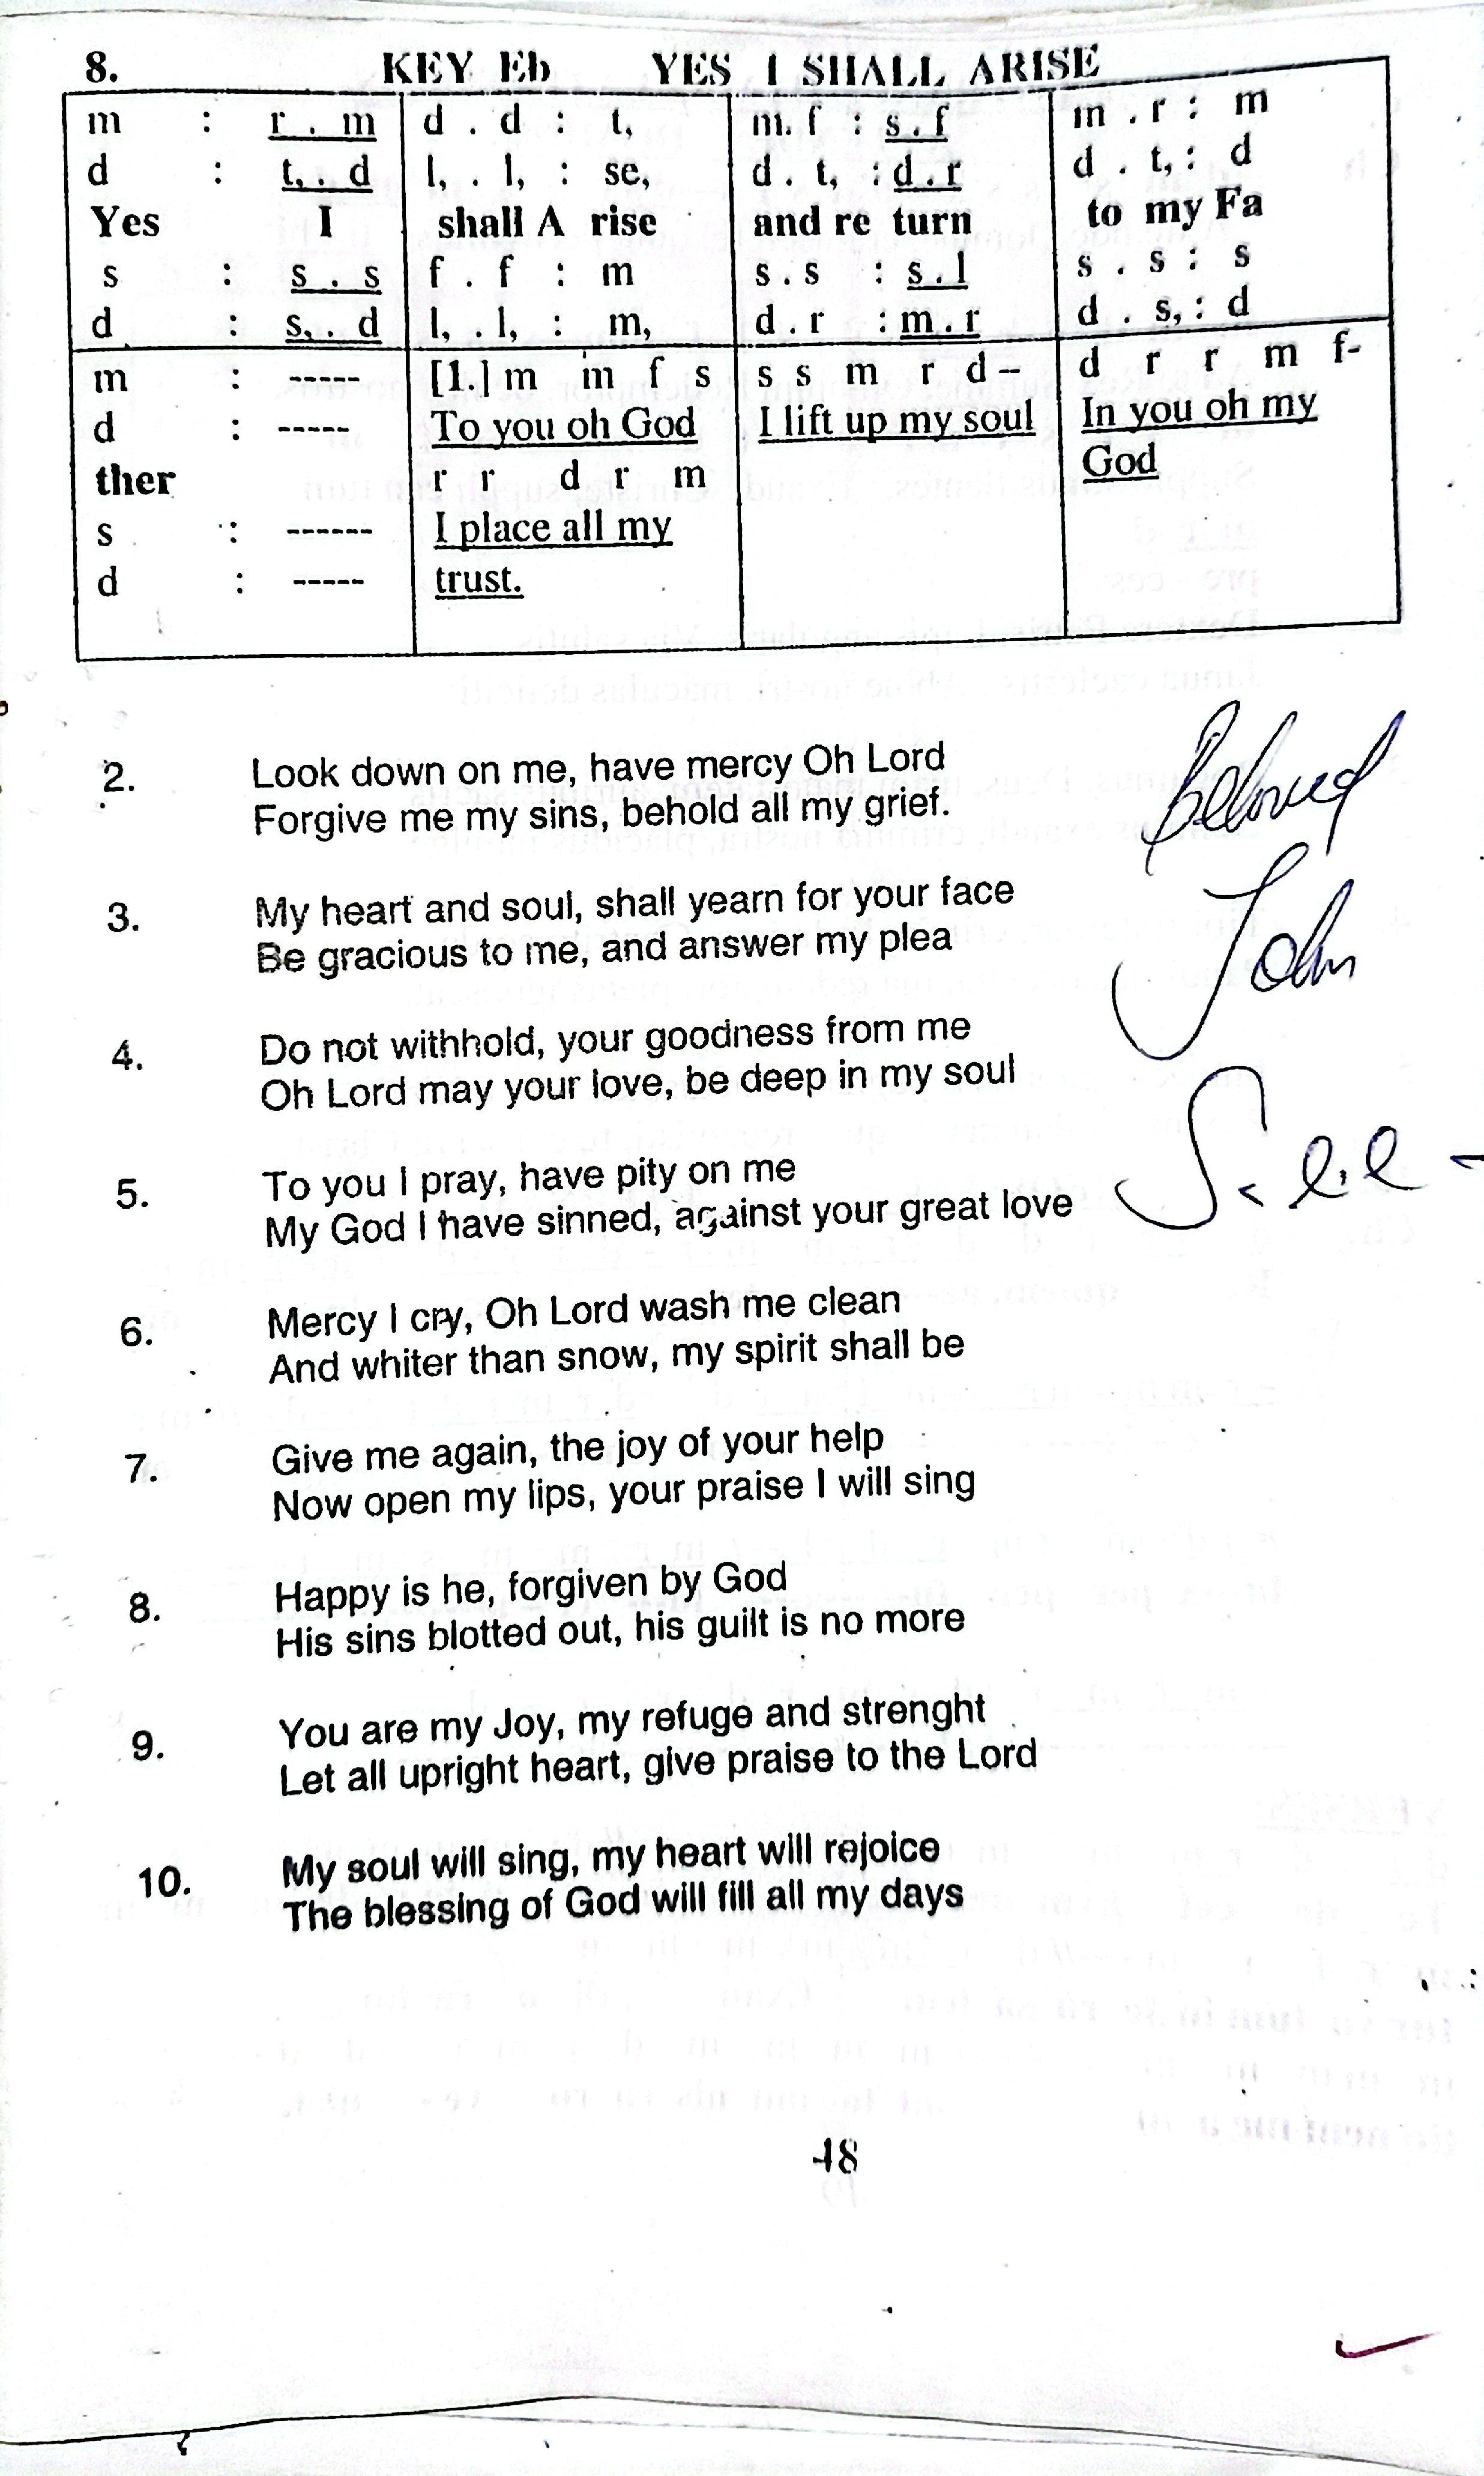 8. KEY Eb YES I SHALL ARISE
m : r . m | d . d : t, | m. f : s . f | m . r : m
d : t, . d | l, . l, : se, | d . t, : d . r | d . t, : d
Yes I | shall A rise | and re turn | to my Fa
s : s . s | f . f : m | s . s : s . l | s . s : s
d : s, . d | l, . l, : m, | d . r : m . r | d . s, : d
m : ----- | [1.] m m f s | s s m r d – | d r r m f-
d : ----- | To you oh God | I lift up my soul | In you oh my
ther | r r d r m | God
s : ------ | I place all my
d : ----- | trust.
2. Look down on me, have mercy Oh Lord
Forgive me my sins, behold all my grief.
Beloved
3. My heart and soul, shall yearn for your face
Be gracious to me, and answer my plea
John
4. Do not withhold, your goodness from me
Oh Lord may your love, be deep in my soul
5. To you I pray, have pity on me
My God I have sinned, against your great love
6. Mercy I cry, Oh Lord wash me clean
And whiter than snow, my spirit shall be
7. Give me again, the joy of your help
Now open my lips, your praise I will sing
8. Happy is he, forgiven by God
His sins blotted out, his guilt is no more
9. You are my Joy, my refuge and strenght
Let all upright heart, give praise to the Lord
10. My soul will sing, my heart will rejoice
The blessing of God will fill all my days
48